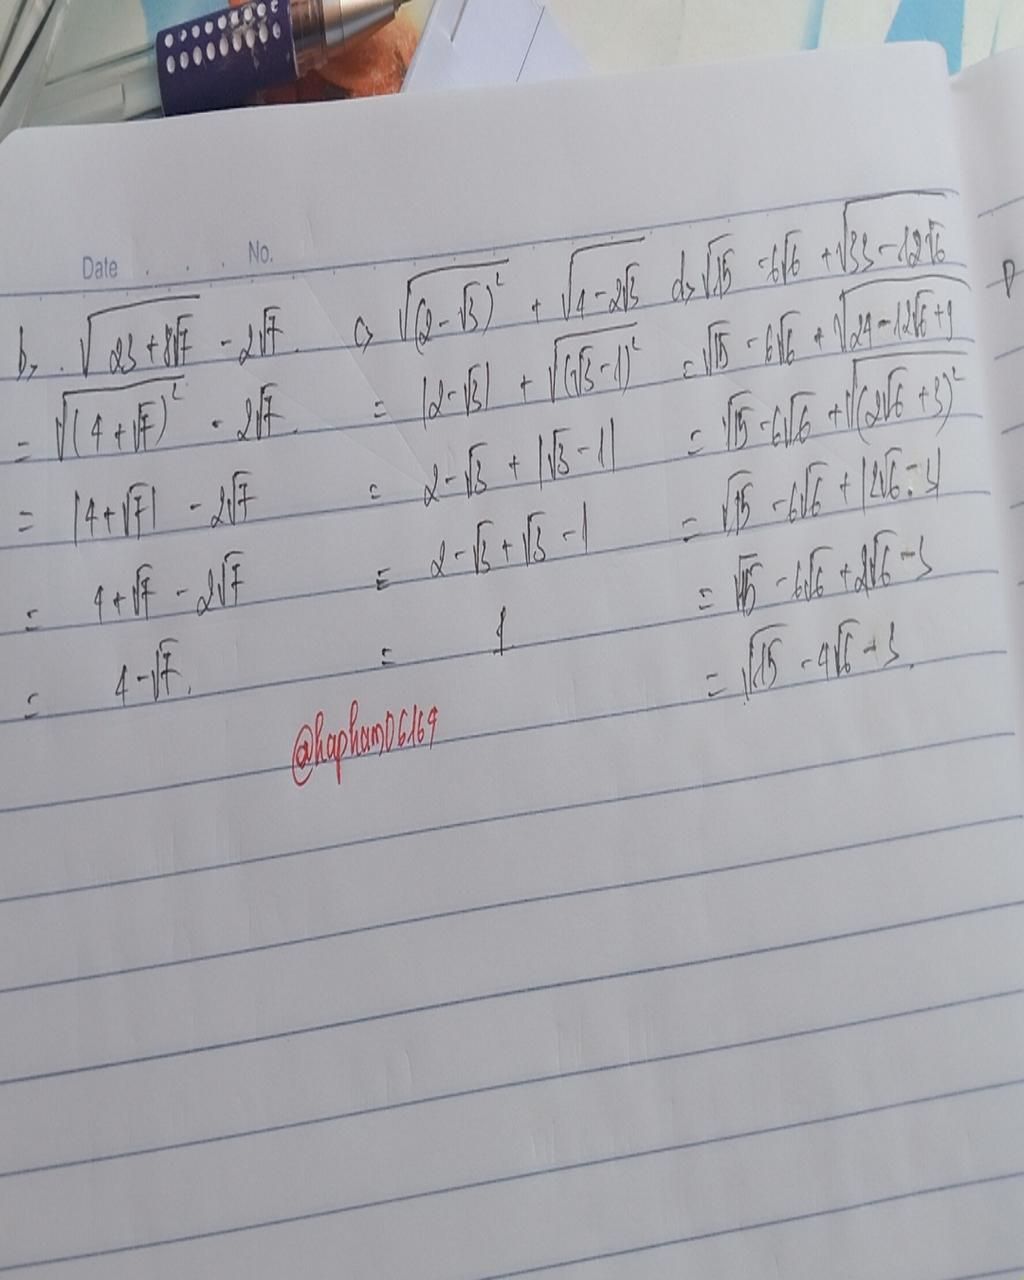 Date No.
b, √(23 + 8√7) - 2√7.
= √((4 + √7)²) - 2√7.
= |4 + √7| - 2√7
= 4 + √7 - 2√7
= 4 - √7.
c, √((2 - √3)²) + √(4 - 2√3)
= |2 - √3| + √((√3 - 1)²)
= 2 - √3 + |√3 - 1|
= 2 - √3 + √3 - 1
= 1
d, √15 - 6√6 + √(33 - 12√6)
= √15 - 6√6 + √(24 - 12√6 + 9)
= √15 - 6√6 + √((2√6 + 3)²)
= √15 - 6√6 + |2√6 - 3|
= √15 - 6√6 + 2√6 - 3
= √15 - 4√6 - 3.
@hapham06164